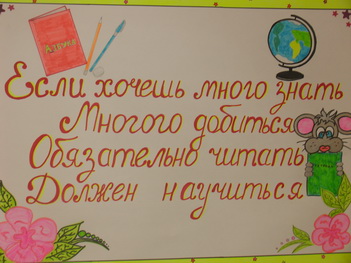 Азбука
Если хочешь много знать
Многого добиться
Обязательно читать
Должен научиться